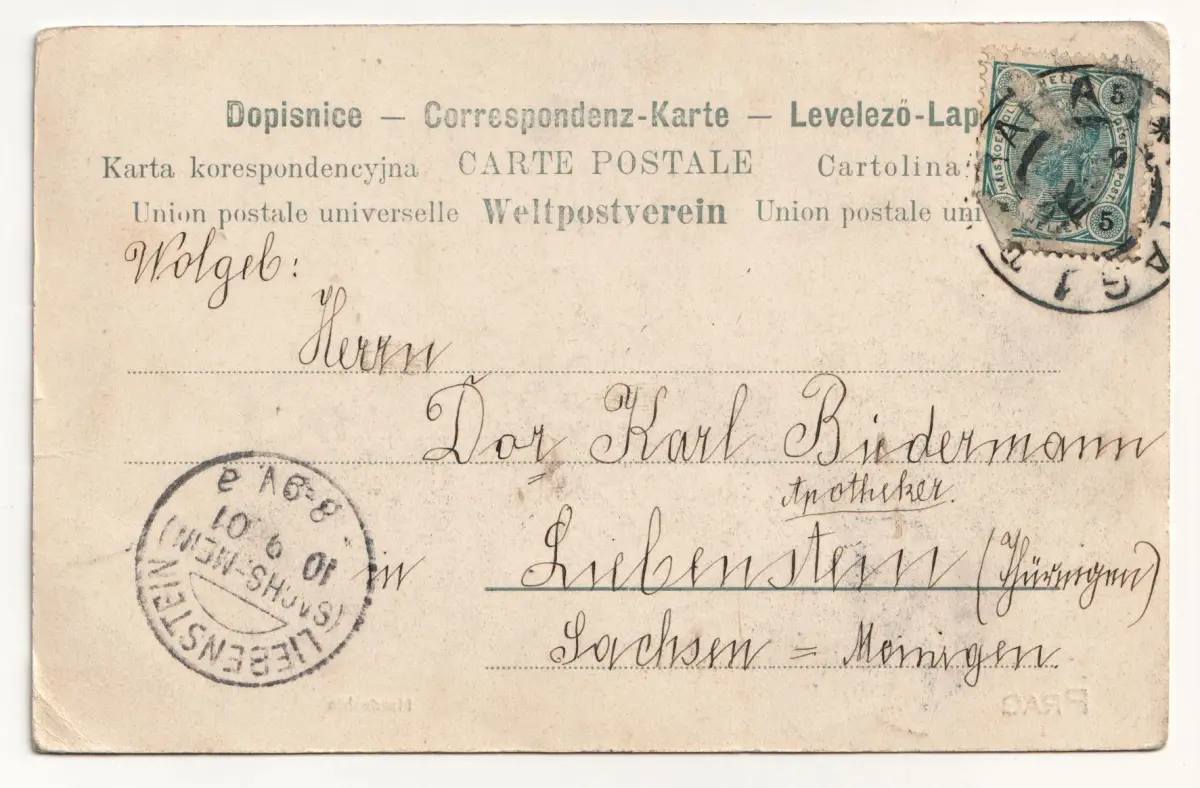 Dopisnice — Correspondenz-Karte — Levelező-Lap
Karta korespondencyjna CARTE POSTALE Cartolina
Union postale universelle Weltpostverein Union postale uni
5
5
Wolgeb:
Herrn
Dor Karl Biedermann
Apotheker.
in Liebenstein (Thüringen)
Sachsen = Meinigen.
LIEBENSTEIN
(SACHS-MEIN)
10 9 01
8-9V. a
PRAG